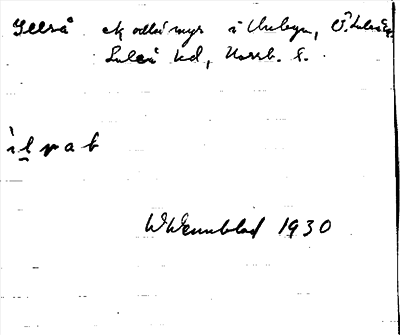 Illrå ek odlad myr i Unbyn, Ö. Luleå sn,
Luleå kd, Norrb. l.
ìlrab
W Wennblad 1930